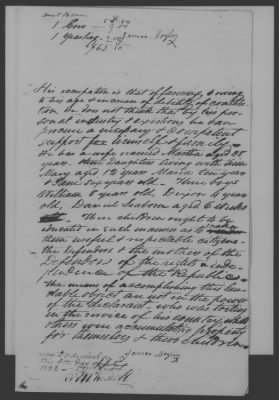 1 Cow
1 Yearling James Mozley
His occupation is that of farming, & owing
to his age & means of debility of constitu-
tion he does not think that by his per-
sonal industry & exertions he can
procure a necessary & competent
support for himself & family.
He has a wife named Martha aged 38
years. three Daughters living with him
Mary aged 12 years Maria ten years
& Jane Six years old. Three boys
William 8 years old, Dixon 4 years
old. Daniel aged 6 weeks
These children ought to be
educated in such manner as to make
them useful & respectable citizens
the Defenders & the mothers of the
Defenders of the rights & inde-
pendence of the Republic.
The means of accomplishing this lau-
dable object are not in the power
of the declarant who was toiling
in the service of his country while
others were accumulating property
for themselves & their children
James Mozley
this day